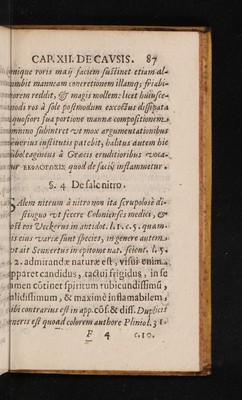 CAP. XII. DE CAVSIS. 87
mnique roris maij faciem sustinet etiam al-
imbit mannæam concretionem illamq; friabi-
iorem reddit, & magis mollem: licet huiusce-
modi ros à sole postmodum excoctus dissipata
quosiori sua portione mannæ compositionem
omnino subintret vt mox argumentationibus
euerius institutis patebit, halitus autem hic
aboleagineus à Græcis eruditioribus voca-
tur quod de facili inflammetur.
§. 4. De sale nitro.
SAlem nitrum à nitro non ita scrupolosè di-
stinguo vt fecere Colonienses medici, &
ost eos Veckerus in antidot. l. 1. c. 5. quam-
is eius variæ sunt species, in genere autem
vt ait Scunertus in epitome nat. scient. l. 5.
. 2. admirandæ naturæ est, visui enim
apparet candidus, tactui frigidus, in se
amen côtinet spiritum rubicundissimũ,
alidissimum, & maximè inflamabilem,
ibi contrarius est in app. cõs. & diss. Duplicis
eneris est quoad colorem authore Plinio l. 31.
F 4 c. 10.